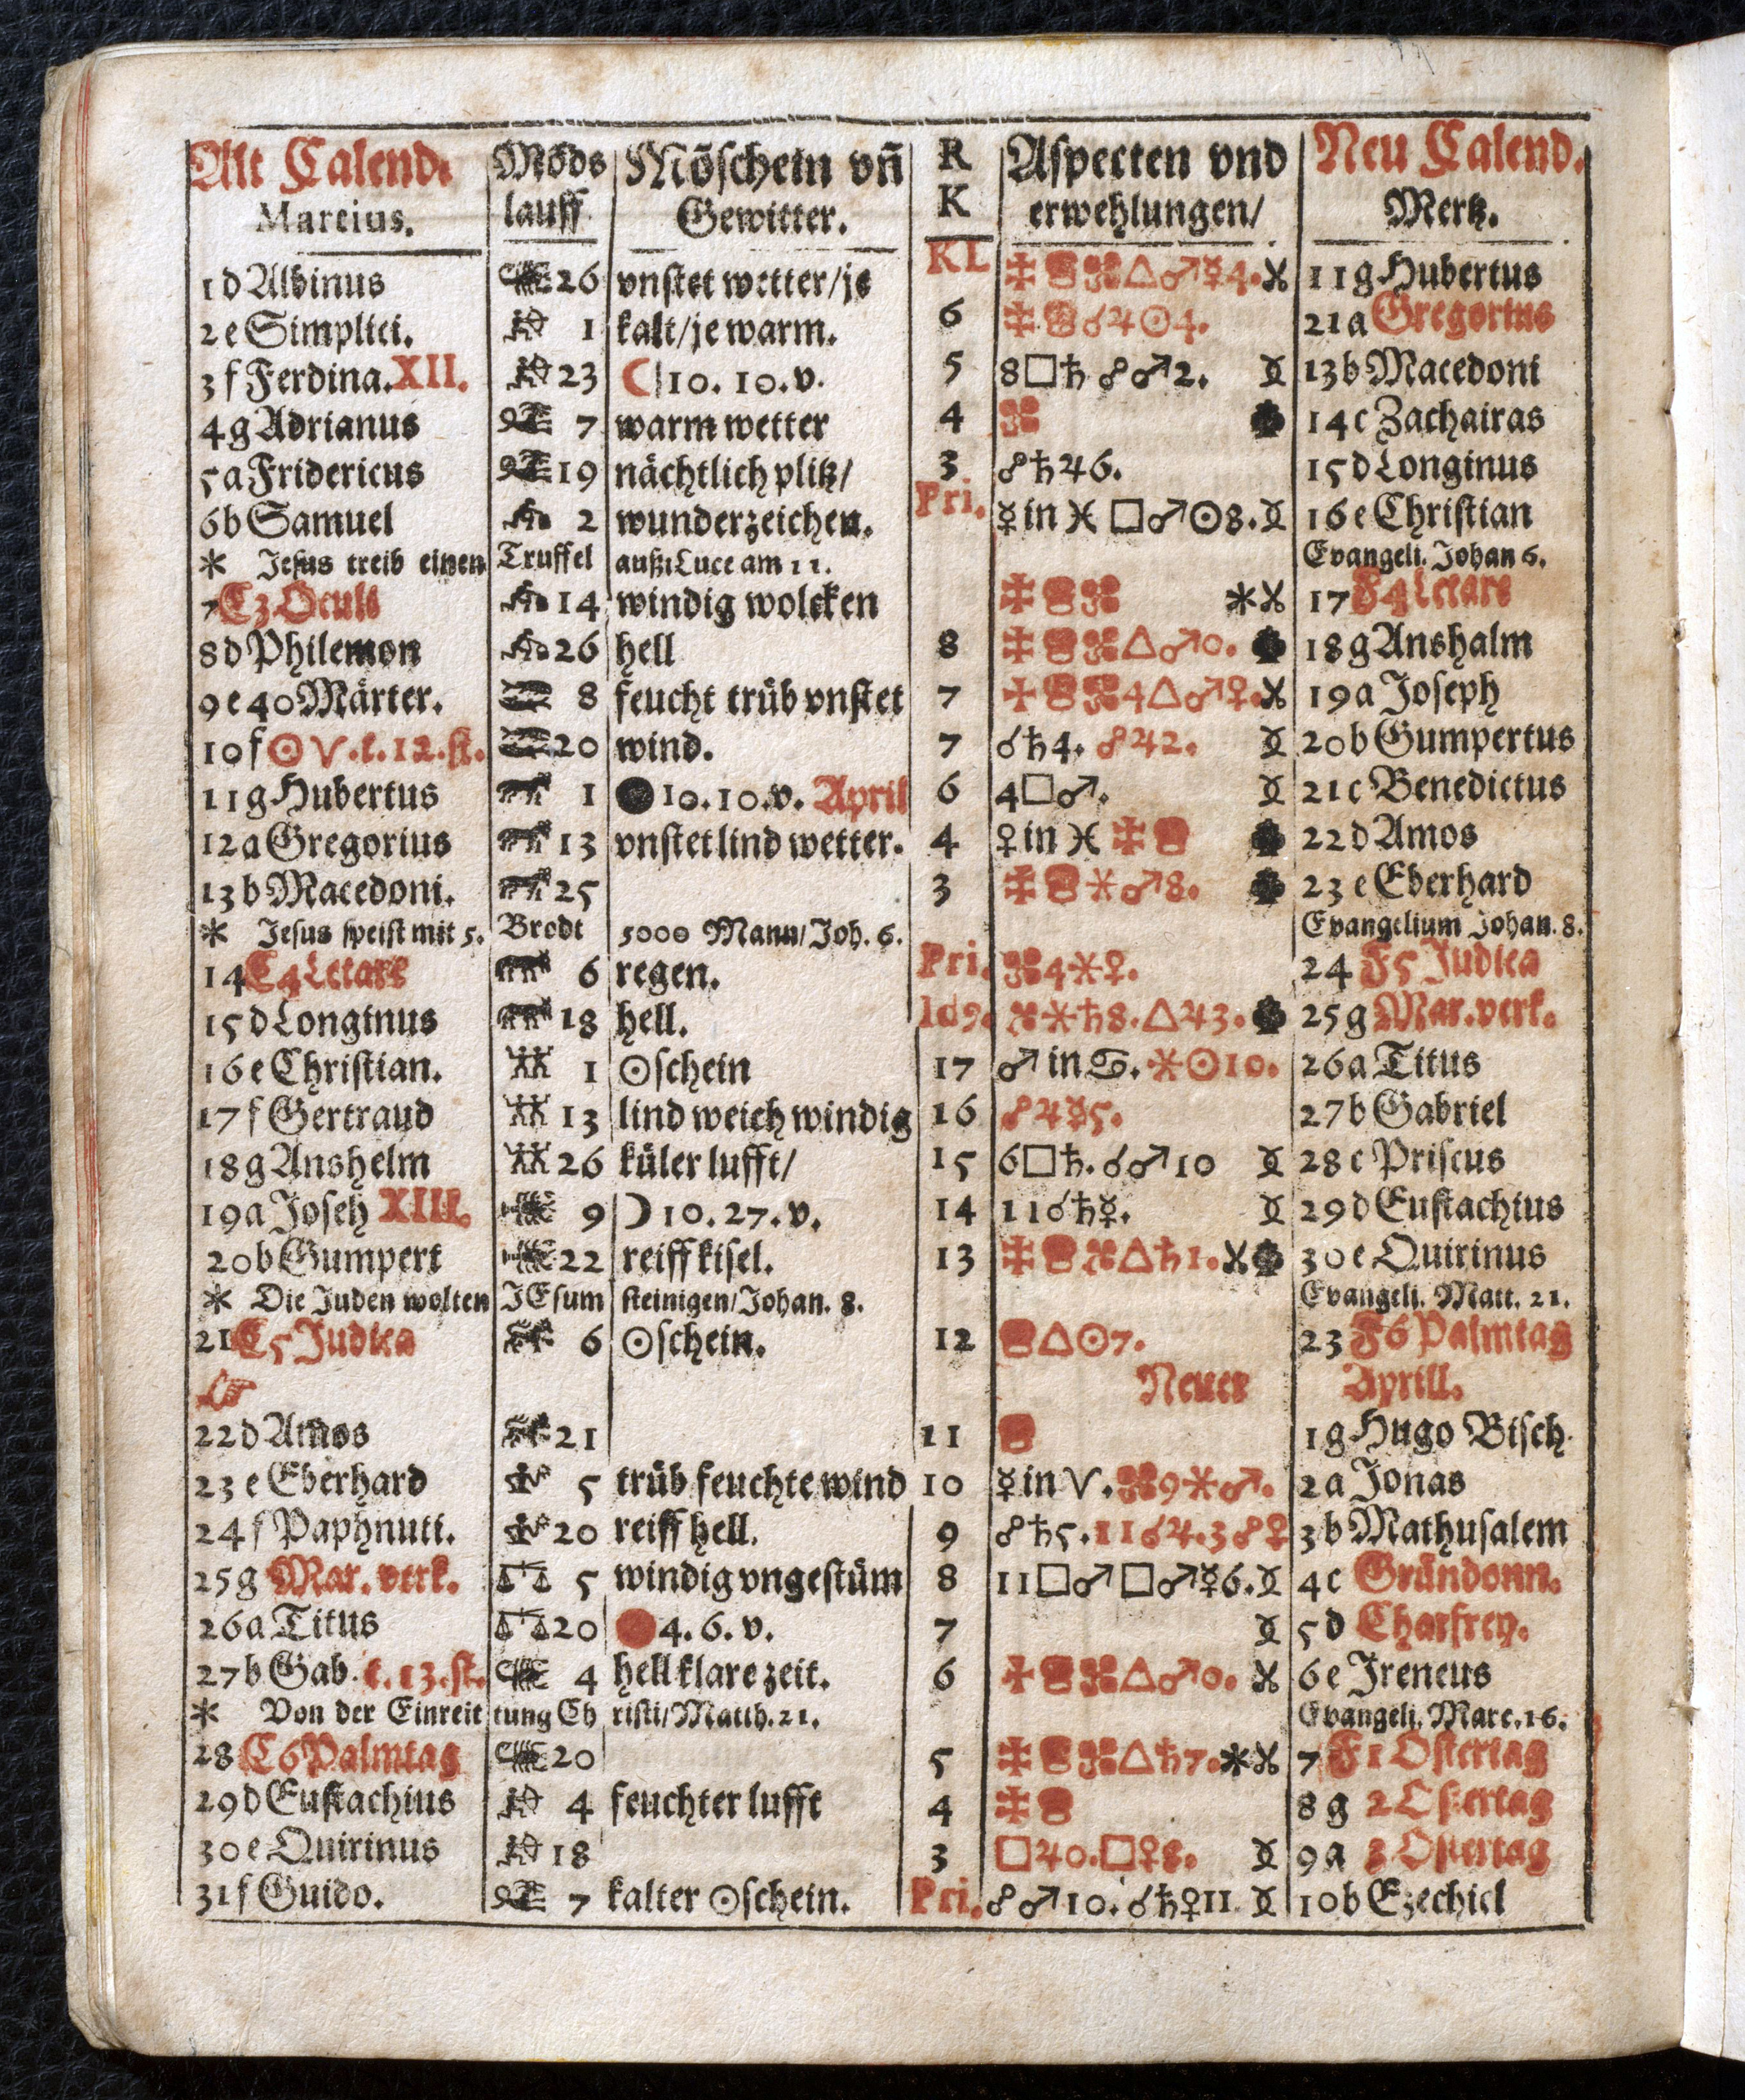 Alt Calend. Mōds Mōschein vn̄ R Aspecten vnd Neu Calend.
Martius. lauff Gewitter. K erwehlungen/ Mertz.
1 d Albinus 26 vnstet wetter/je KL △♂☿4. 11 g Hubertus
2 e Simplici. 1 kalt/je warm. 6 ☌♃☉4. 21 a Gregorius
3 f Ferdina. XII. 23 ☾ 10. 10. v. 5 8□♄ ☍♂2. 13 b Macedoni
4 g Adrianus 7 warm wetter 4 14 c Zachairas
5 a Fridericus 19 nächtlich plitz/ 3 ☍♄♃6. 15 d Longinus
6 b Samuel 2 wunderzeichen. Pri. ☿ in ♓ □♂☉8. 16 e Christian
* Jesus treib einen Truffel auß Luce am 11. Evangeli. Johan 6.
7 C3 Oculi 14 windig wolcken * 17 F4 Letare
8 d Philemon 26 hell 8 △♂0. 18 g Anshalm
9 e 40 Märter. 8 feucht trüb vnstet 7 4△♂♀. 19 a Joseph
10 f ☉ ♈. l. 12. st. 20 wind. 7 ☌♄4. ☍♃2. 20 b Gumpertus
11 g Hubertus 1 ● 10. 10. v. April 6 4□♂. 21 c Benedictus
12 a Gregorius 13 vnstet lind wetter. 4 ♀ in ♓ 22 d Amos
13 b Macedoni. 25 3 ⚹♂8. 23 e Eberhard
* Jesus speist mit 5. Brodt 5000 Mann/Joh. 6. Evangelium Johan. 8.
14 C4 Letare 6 regen. Pri. 4⚹♀. 24 F5 Judica
15 d Longinus 18 hell. Id9. ⚹♄8. △♃3. 25 g Mar. verk.
16 e Christian. 1 ☉schein 17 ♂ in ♋. ⚹☉10. 26 a Titus
17 f Gertraud 13 lind weich windig 16 ☍♃☿5. 27 b Gabriel
18 g Anshelm 26 küler lufft/ 15 6□♄. ☌♂10 28 c Priscus
19 a Joseh XIII. 9 ☽ 10. 27. v. 14 11☌♄☿. 29 d Eustachius
20 b Gumpert 22 reiff kisel. 13 △♄1. 30 e Quirinus
* Die Juden wolten JEsum steinigen/Johan. 8. Evangeli. Matt. 21.
21 C5 Judica 6 ☉schein. 12 △☉7. 23 F6 Palmtag
Neuer Aprill.
22 d Amos 21 11 1 g Hugo Bisch.
23 e Eberhard 5 trüb feuchte wind 10 ☿ in ♈. 9⚹♂. 2 a Jonas
24 f Paphnuti. 20 reiff hell. 9 ☍♄5. 11☌♃. 3☍♀ 3 b Mathusalem
25 g Mar. verk. 5 windig vngestüm 8 11□♂ □♂☿6. 4 c Gründonn.
26 a Titus 20 ● 4. 6. v. 7 5 d Charfrey.
27 b Gab. l. 13. st. 4 hell klare zeit. 6 △♂0. 6 e Jreneus
* Von der Einreit tung Ch risti/Matth. 21. Evangeli. Marc. 16.
28 C6 Palmtag 20 5 △♄7. * 7 F1 Ostertag
29 d Eustachius 4 feuchter lufft 4 8 g 2 Ostertag
30 e Quirinus 18 3 □♃0. □♀8. 9 a 3 Ostertag
31 f Guido. 7 kalter ☉schein. Pri. ☍♂10. ☌♄♀11 10 b Ezechiel